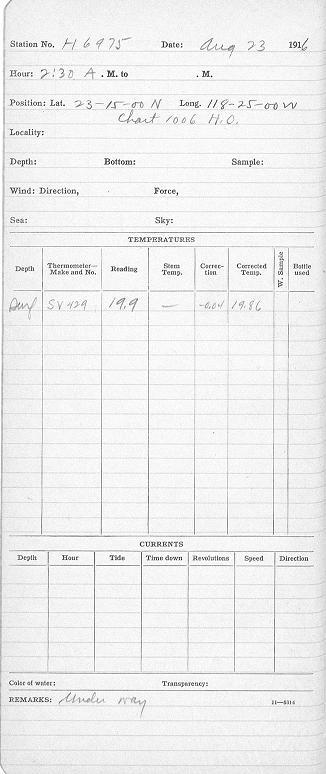 Station No. H 6975 Date: Aug 23 1916
Hour: 2:30 A . M. to . M.
Position: Lat. 23-15-00 N Long. 118-25-00 W
Chart 1006 H.O.
Locality:
Depth: Bottom: Sample:
Wind: Direction, Force,
Sea: Sky:
TEMPERATURES
Depth Thermometer—Make and No. Reading Stem Temp. Correc-tion Corrected Temp. W. Sample Bottle used
Surf SV 429 19.9 — -0.04 19.86
CURRENTS
Depth Hour Tide Time down Revolutions Speed Direction
Color of water: Transparency:
REMARKS: Under way 11—5314